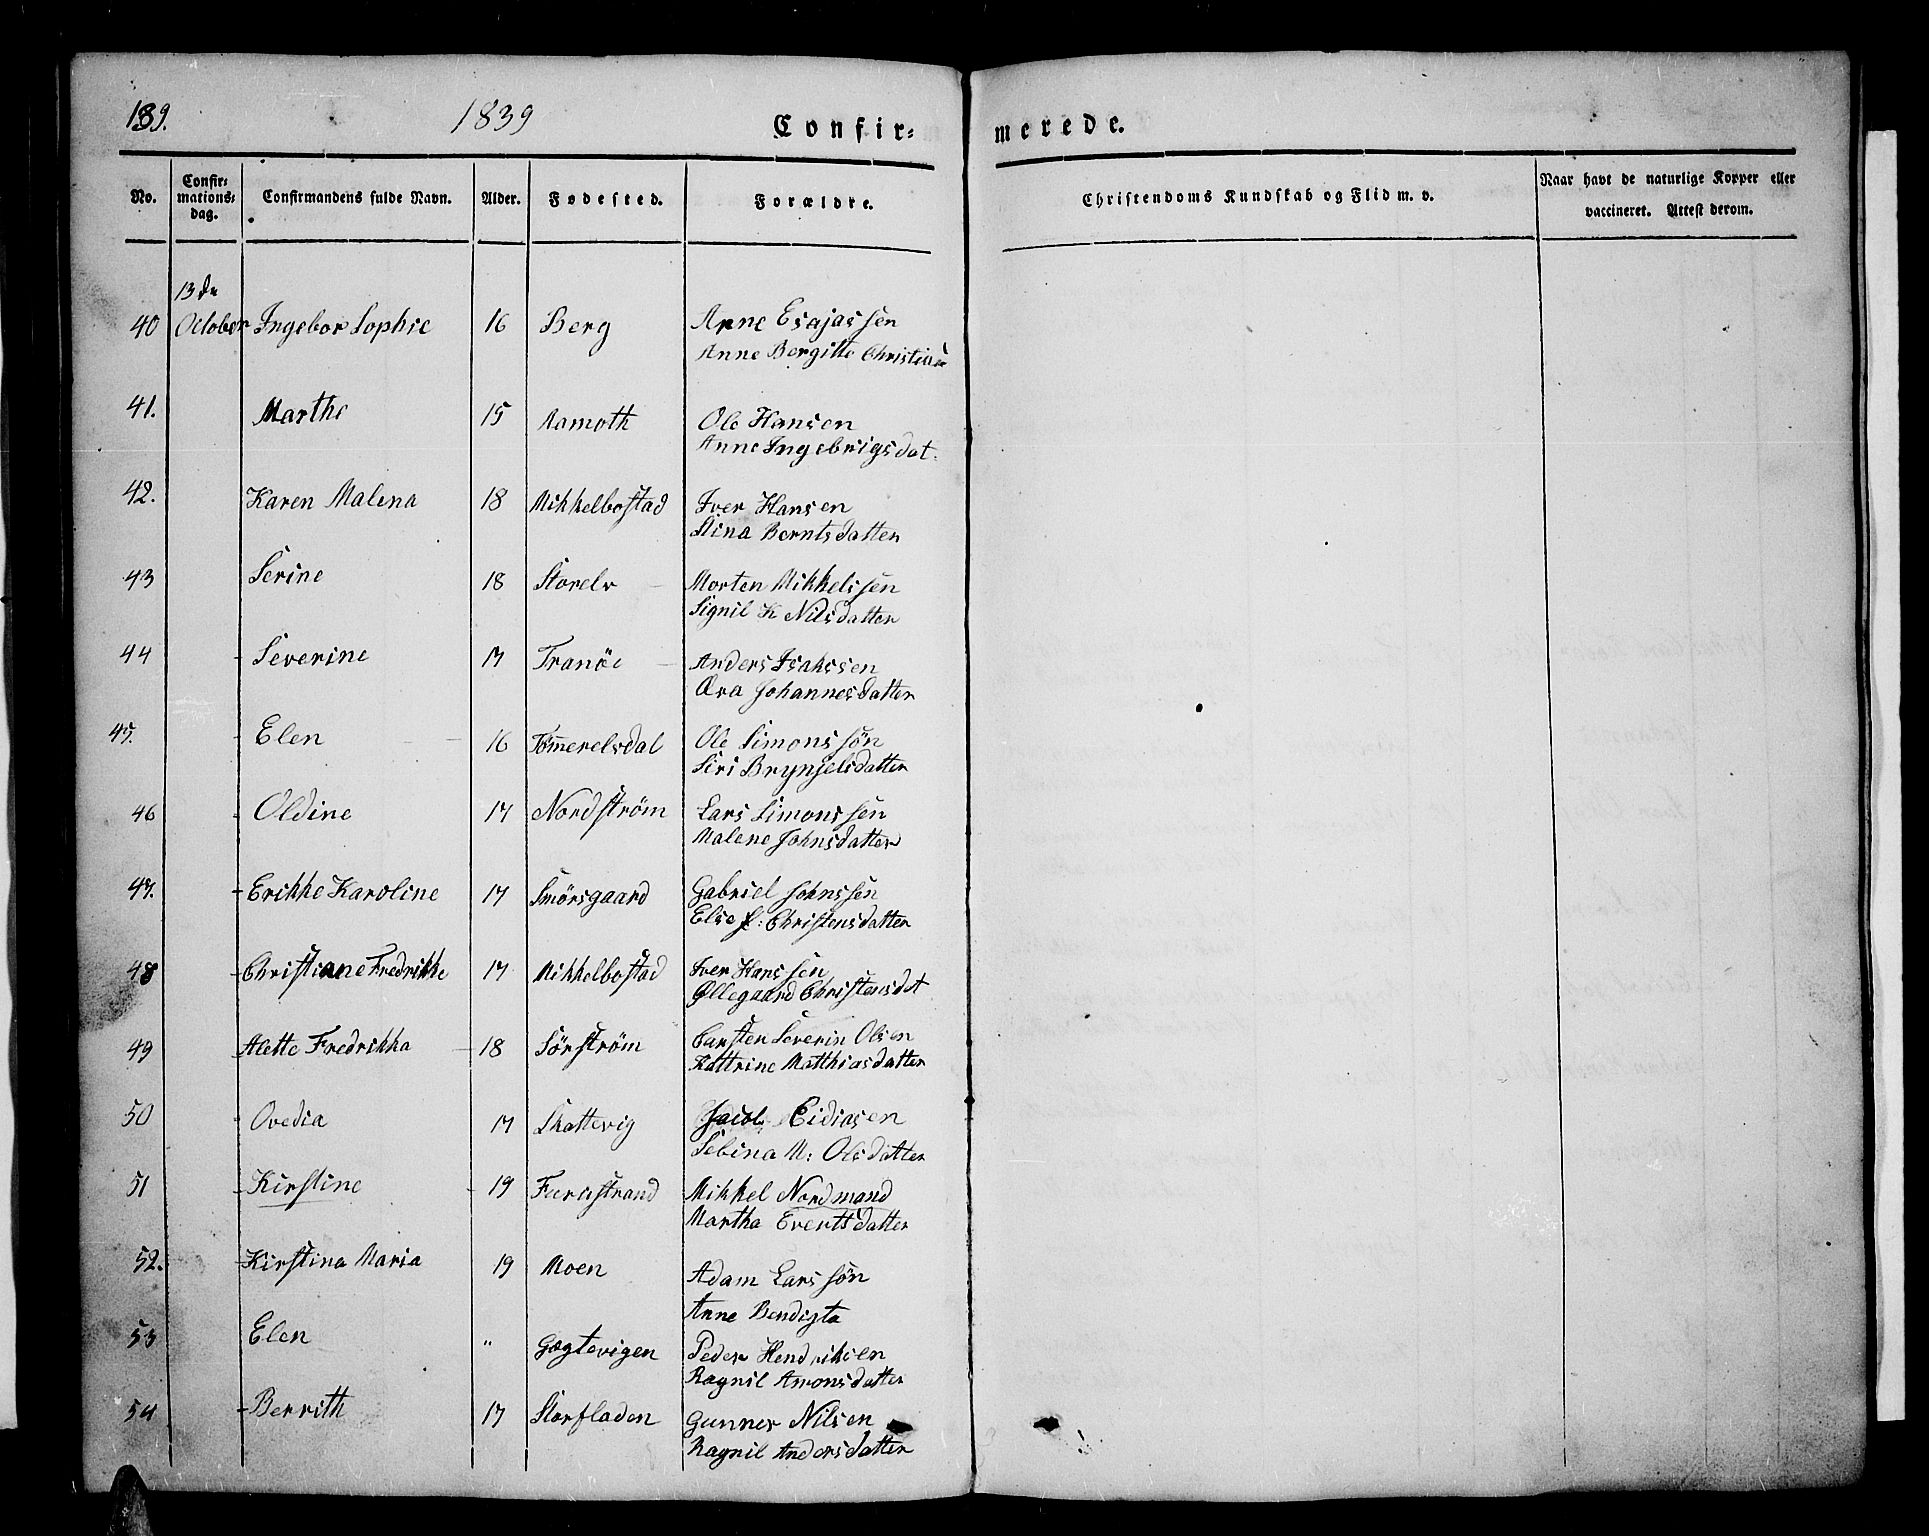 139. 1839 Confir= merede.
No. Confir=mations=dag. Confirmandens fulde Navn. Alder. Fødested. Forældre. Christendoms Kundskab og Flid m. v. Naar havt de naturlige Kopper eller vaccineret. Attest derom.
13de
40 October Ingebor Sophie 16 Berg Arne Esajassen
Anne Bergitte Christians
41. Marthe 15 Aamoth Ole Hansen
Anne Ingebrigsdat.
42. Karen Malena 18 Mikkelbostad Iver Hansen
Stina Berntsdatter
43 Serine 18 Storelv Morten Mikkelssen
Signil K Nilsdatter
44 Severine 17 Tranöe Anders Isakssen
Eva Johannesdatter
45. Elen 16 Tömerelsdal Ole Simonssön
Siri Brynjelsdatter
46 Oldine 17 Nordström Lars Simonssen
Malene Johnsdatter
47. Erikke Karoline 17 Smörsgaard Gabriel Johnssen
Else J: Christensdatter
48 Christiane Fredrikke 17 Mikkelbostad Iver Hanssen
Øllegaard Christensdat
49 Alette Fredrikka 18 Sörström Carsten Severin Olsen
Kattrine Matthiasdatter
50 Ovedia 17 Skattevig Jacob Eidissen
Sebina M: Olsdatter
51 Kirstine 19 Furustrand Mikkel Nordmand
Martha Evertsdatter
52. Kirstina Maria 19 Moen Adam Larssön
Anne Bendigta
53 Elen " Gogtevigen Peder Hendriksen
Ragnil Amonsdatter
54 Berrith 17 Storfladen Gunner Nilsen
Ragnil Andersdatter